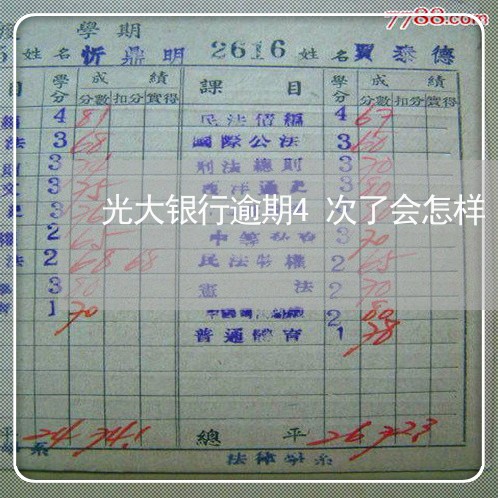 7788.com
學期
姓名 忻鼎明 2616 姓名 賈泰德
目 學分 成績 課目 學分 成績
分數 扣分 實得 分數 扣分 實得
4 81 民法債編 4 67
法 3 68 國際公法 3 60
3 刑法總則 3 70
3 75 西洋通史 3 80
光大银行逾期4 次了会怎样
2 65 3 70
法 2 68 68 民法物權 2 65
3 80 憲法 2 70
1 70 2 80
普通體育 1 78
平 24 74.1 總平 26 72.3
系 法律學系